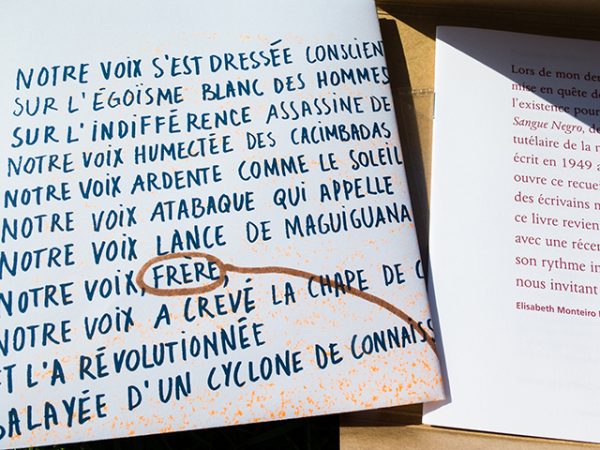 NOTRE VOIX S'EST DRESSÉE CONSCIEN
SUR L'ÉGOÏSME BLANC DES HOMMES
SUR L'INDIFFÉRENCE ASSASSINE DE
NOTRE VOIX HUMECTÉE DES CACIMBADAS
NOTRE VOIX ARDENTE COMME LE SOLEIL
NOTRE VOIX ATABAQUE QUI APPELLE
NOTRE VOIX LANCE DE MAGUIGUANA
NOTRE VOIX, FRÈRE,
NOTRE VOIX A CREVÉ LA CHAPE DE C
ET L'A RÉVOLUTIONNÉE
BALAYÉE D'UN CYCLONE DE CONNAISS
Lors de mon der
mise en quête de
l'existence pour
Sangue Negro, de
tutélaire de la n
écrit en 1949 a
ouvre ce recuei
des écrivains n
ce livre revien
avec une récen
son rythme in
nous invitant
Elisabeth Monteiro